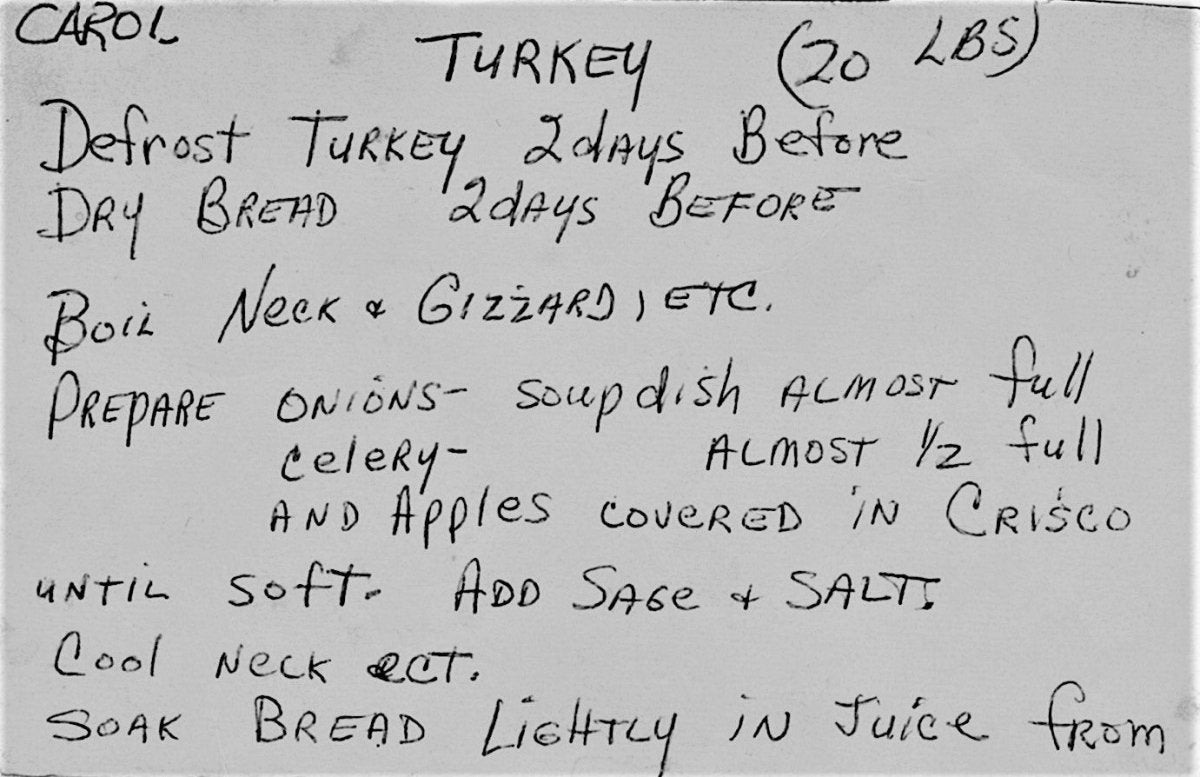 CAROL
TURKEY (20 LBS)
Defrost TURKEY 2 dAYS Before
DRY BREAD 2 dAYS BEFORE
Boil Neck & GIZZARD, ETC.
PREPARE ONIONS- soup dish ALMOST full
celeRy- ALMOST 1/2 full
AND Apples COVERED IN CRISCO
UNTIL SOFT. ADD SAGe & SALT.
Cool NECK ECT.
SOAK BREAD LIGHTLY IN Juice from